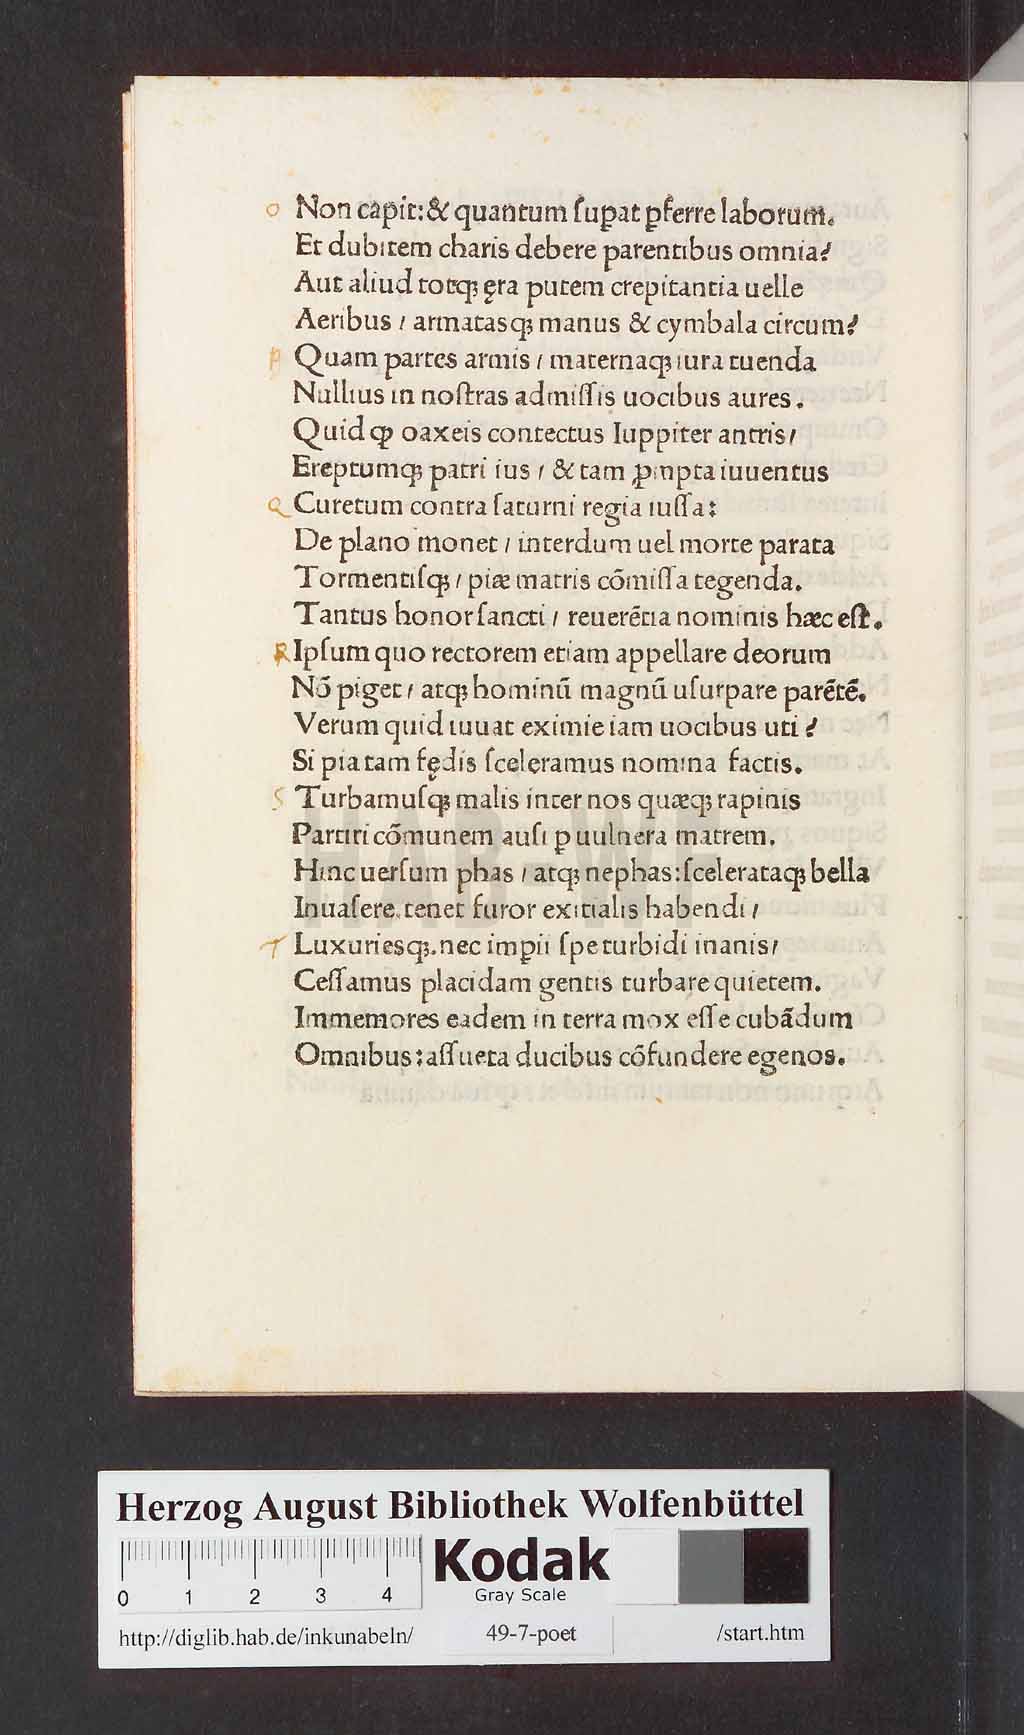 o Non capit:& quantum ſuꝑat ꝑferre laborum.
Et dubitem charis debere parentibus omnia?
Aut aliud totqꝫ ęra putem crepitantia uelle
Aeribus / armatasqꝫ manus & cymbala circum?
p Quam partes armis / maternaqꝫ iura tuenda
Nullius in noſtras admiſſis uocibus aures.
Quid ꝙ oaxeis contectus Iuppiter antris/
Ereptumqꝫ patri ius / & tam ꝓmpta iuuentus
Q Curetum contra ſaturni regia iuſſa:
De plano monet / interdum uel morte parata
Tormentiſqꝫ / piæ matris cōmiſſa tegenda.
Tantus honor ſancti / reuerētia nominis hæc eſt.
R Ipſum quo rectorem etiam appellare deorum
Nō piget / atqꝫ hominū magnū uſurpare parētē.
Verum quid iuuat eximie iam uocibus uti?
Si pia tam fędis ſceleramus nomina factis.
S Turbamuſqꝫ malis inter nos quæqꝫ rapinis
Partiri cōmunem auſi ꝑ uulnera matrem.
Hinc uerſum phas / atqꝫ nephas:ſcelerataqꝫ bella
Inuaſere.tenet furor exitialis habendi /
T Luxurieſqꝫ.nec impii ſpe turbidi inanis/
Ceſſamus placidam gentis turbare quietem.
Immemores eadem in terra mox eſſe cubādum
Omnibus:aſſueta ducibus cōfundere egenos.
HAB-WF
Herzog August Bibliothek Wolfenbüttel
0 1 2 3 4
Kodak
Gray Scale
http://diglib.hab.de/inkunabeln/ 49-7-poet /start.htm